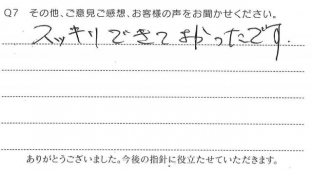 Q7 その他、ご意見ご感想、お客様の声をお聞かせください。
スッキリできてよかったです.
ありがとうございました。今後の指針に役立たせていただきます。